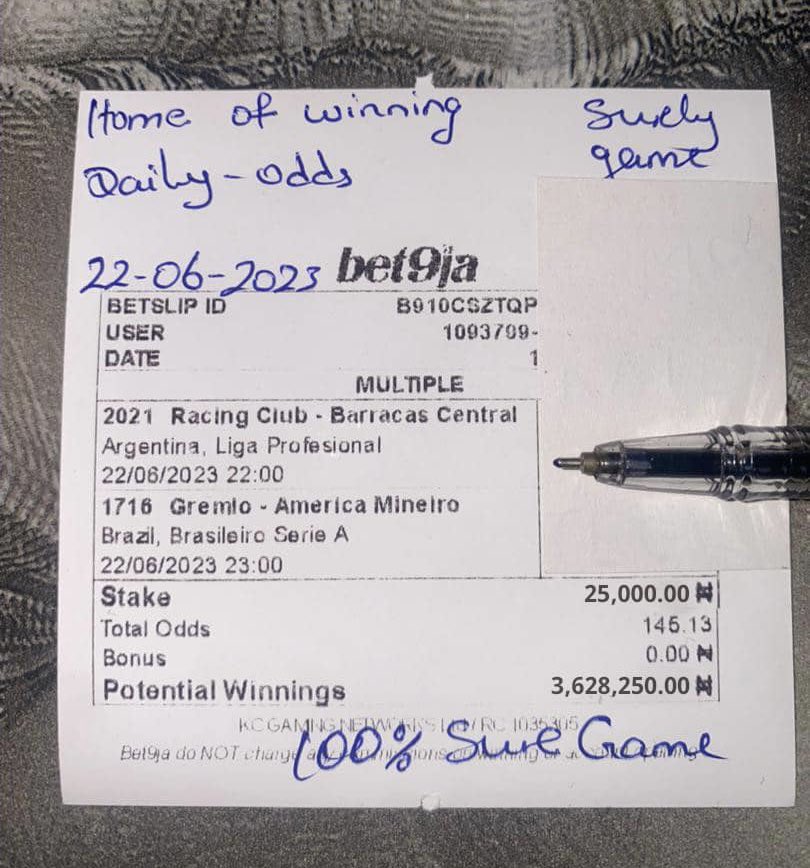 Home of winning Surely
Daily-odds game
22-06-2023 bet9ja
BETSLIP ID B910CSZTQP
USER 1093709-
DATE 1
MULTIPLE
2021 Racing Club - Barracas Central
Argentina, Liga Profesional
22/06/2023 22:00
1716 Gremio - America Mineiro
Brazil, Brasileiro Serie A
22/06/2023 23:00
Stake 25,000.00 ₦
Total Odds 145.13
Bonus 0.00 ₦
Potential Winnings 3,628,250.00 ₦
KC GAMING NETWORKS RC 1035305
Bet9ja do NOT charge winning
100% Sure Game